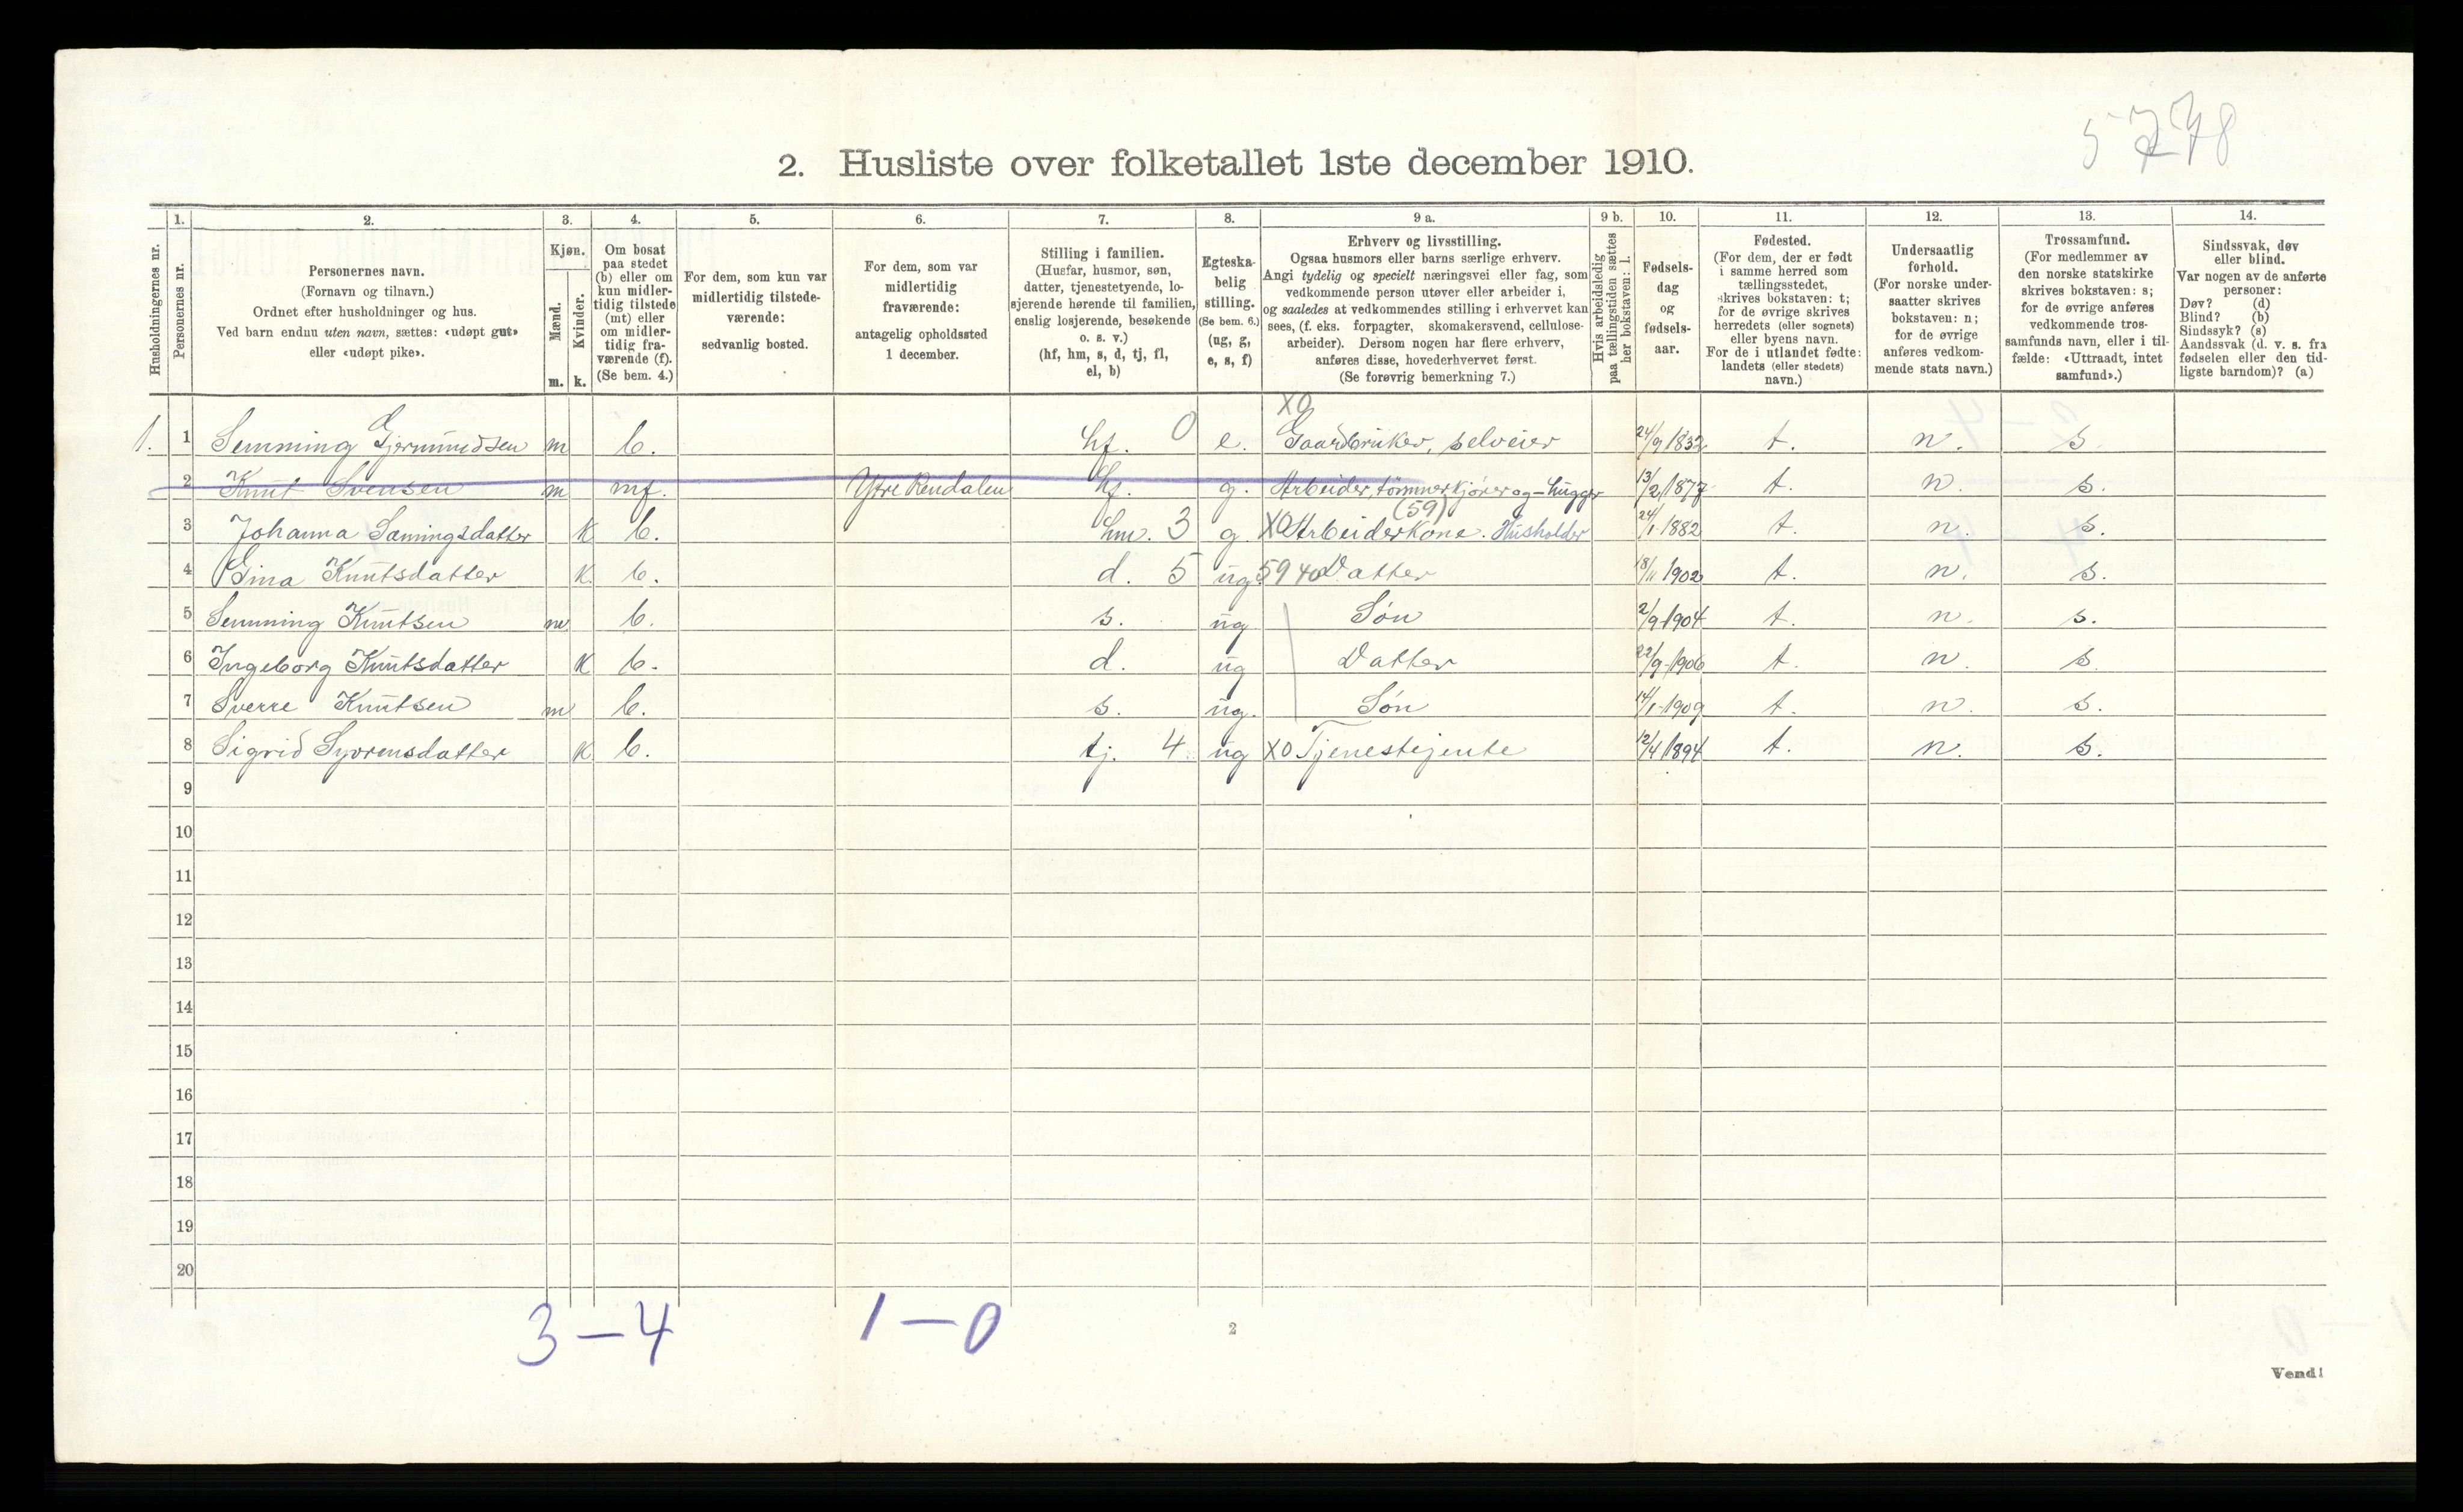 5778
2. Husliste over folketallet 1ste december 1910.
Husholdningernes nr.
1. Personernes nr.
2. Personernes navn.
(Fornavn og tilnavn.)
Ordnet efter husholdninger og hus.
Ved barn endnu uten navn, sættes: «udøpt gut»
eller «udøpt pike».
3. Kjøn.
Mænd. m.
Kvinder. k.
4. Om bosat
paa stedet
(b) eller om
kun midler-
tidig tilstede
(mt) eller
om midler-
tidig fra-
værende (f).
(Se bem. 4.)
5. For dem, som kun var
midlertidig tilstede-
værende:
sedvanlig bosted.
6. For dem, som var
midlertidig
fraværende:
antagelig opholdssted
1 december.
7. Stilling i familien.
(Husfar, husmor, søn,
datter, tjenestetyende, lo-
sjerende hørende til familien,
enslig losjerende, besøkende
o. s. v.)
(hf, hm, s, d, tj, fl,
el, b)
8. Egteska-
belig
stilling.
(Se bem. 6.)
(ug, g,
e, s, f)
9 a. Erhverv og livsstilling.
Ogsaa husmors eller barns særlige erhverv.
Angi tydelig og specielt næringsvei eller fag, som
vedkommende person utøver eller arbeider i,
og saaledes at vedkommendes stilling i erhvervet kan
sees, (f. eks. forpagter, skomakersvend, cellulose-
arbeider). Dersom nogen har flere erhverv,
anføres disse, hovederhvervet først.
(Se forøvrig bemerkning 7.)
9 b. Hvis arbeidsledig
paa tællingstiden sættes
her bokstaven: l.
10. Fødsels-
dag
og
fødsels-
aar.
11. Fødested.
(For dem, der er født
i samme herred som
tællingsstedet,
skrives bokstaven: t;
for de øvrige skrives
herredets (eller sognets)
eller byens navn.
For de i utlandet fødte:
landets (eller stedets)
navn.)
12. Undersaatlig
forhold.
(For norske under-
saatter skrives
bokstaven: n;
for de øvrige
anføres vedkom-
mende stats navn.)
13. Trossamfund.
(For medlemmer av
den norske statskirke
skrives bokstaven: s;
for de øvrige anføres
vedkommende tros-
samfunds navn, eller i til-
fælde: «Uttraadt, intet
samfund».)
14. Sindssvak, døv
eller blind.
Var nogen av de anførte
personer:
Døv? (d)
Blind? (b)
Sindssyk? (s)
Aandssvak (d. v. s. fra
fødselen eller den tid-
ligste barndom)? (a)
X0
1. 1 Semming Gjermundsen m b. hf. 0 e. Gaardbruker, selveier 24/9 1832 t. n. s.
2 Knut Svensen m mf. Ytre Rendalen hf. g. Arbeider, tømmerkjører og-hugger 13/2 1877 t. n. s.
(59)
3 Johanna Sæmingsdatter k b. hm. 3 g. X0 Arbeiderkone. Husholder 24/1 1882 t. n. s.
4 Gina Knutsdatter k. b. d. 5 ug. 59 40 Datter 18/11 1902 t. n. s.
5 Semming Knutsen m b. s. ug Søn 2/9 1904 t. n. s.
6 Ingeborg Knutsdatter k b. d. ug Datter 22/9 1906 t. n. s.
7 Sverre Knutsen m b. s. ug. Søn 14/1 1909 t. n. s.
8 Sigrid Syvrensdatter k b. tj. 4 ug X0 Tjenestejente 12/4 1894 t. n. s.
9
10
11
12
13
14
15
16
17
18
19
20
3 — 4 1 — 0
2
Vend!